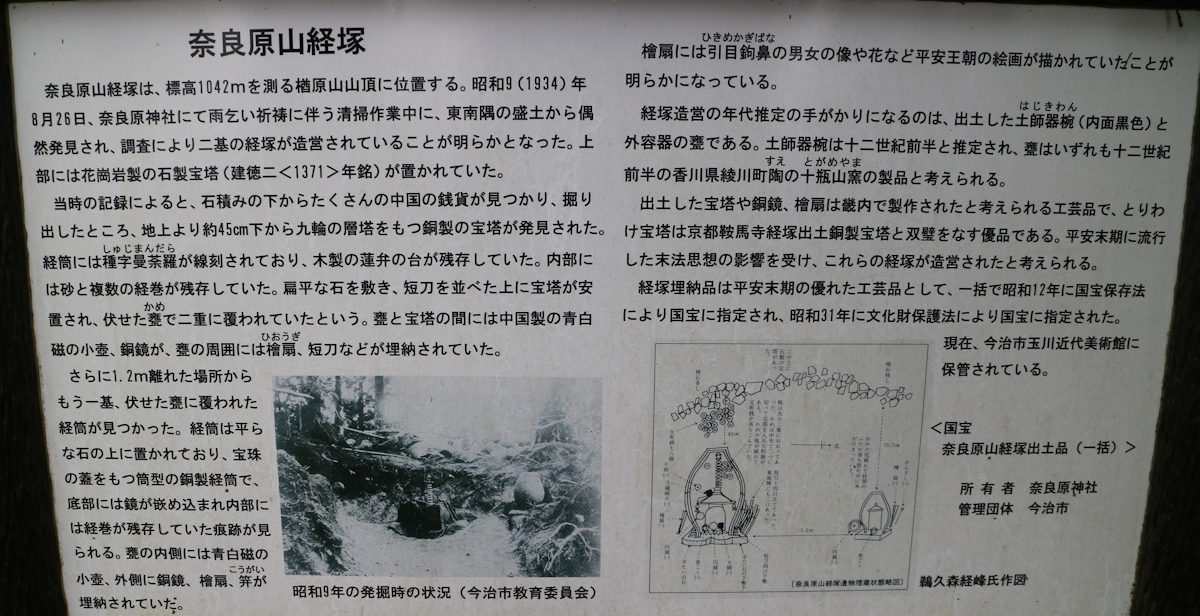 奈良原山経塚
奈良原山経塚は、標高1042mを測る楢原山山頂に位置する。昭和9（1934）年
8月26日、奈良原神社にて雨乞い祈祷に伴う清掃作業中に、東南隅の盛土から偶
然発見され、調査により二基の経塚が造営されていることが明らかとなった。上
部には花崗岩製の石製宝塔（建徳二<1371>年銘）が置かれていた。
当時の記録によると、石積みの下からたくさんの中国の銭貨が見つかり、掘り
出したところ、地上より約45cm下から九輪の層塔をもつ銅製の宝塔が発見された。
しゅじまんだら
経筒には種字曼荼羅が線刻されており、木製の蓮弁の台が残存していた。内部に
は砂と複数の経巻が残存していた。扁平な石を敷き、短刀を並べた上に宝塔が安
かめ
置され、伏せた甕で二重に覆われていたという。甕と宝塔の間には中国製の青白
ひおうぎ
磁の小壺、銅鏡が、甕の周囲には檜扇、短刀などが埋納されていた。
さらに1.2m離れた場所から
もう一基、伏せた甕に覆われた
経筒が見つかった。経筒は平ら
な石の上に置かれており、宝珠
の蓋をもつ筒型の銅製経筒で、
底部には鏡が嵌め込まれ内部に
は経巻が残存していた痕跡が見
られる。甕の内側には青白磁の
こうがい
小壺、外側に銅鏡、檜扇、笄が
埋納されていた。
昭和9年の発掘時の状況（今治市教育委員会）
ひきめかぎばな
檜扇には引目鉤鼻の男女の像や花など平安王朝の絵画が描かれていたことが
明らかになっている。
はじきわん
経塚造営の年代推定の手がかりになるのは、出土した土師器椀（内面黒色）と
外容器の甕である。土師器椀は十二世紀前半と推定され、甕はいずれも十二世紀
すえ とがめやま
前半の香川県綾川町陶の十瓶山窯の製品と考えられる。
出土した宝塔や銅鏡、檜扇は畿内で製作されたと考えられる工芸品で、とりわ
け宝塔は京都鞍馬寺経塚出土銅製宝塔と双璧をなす優品である。平安末期に流行
した末法思想の影響を受け、これらの経塚が造営されたと考えられる。
経塚埋納品は平安末期の優れた工芸品として、一括で昭和12年に国宝保存法
により国宝に指定され、昭和31年に文化財保護法により国宝に指定された。
現在、今治市玉川近代美術館に
保管されている。
<国宝
奈良原山経塚出土品（一括）>
所有者 奈良原神社
管理団体 今治市
1.2m
〔奈良原山経塚遺物埋蔵状態略図〕
鵜久森経峰氏作図